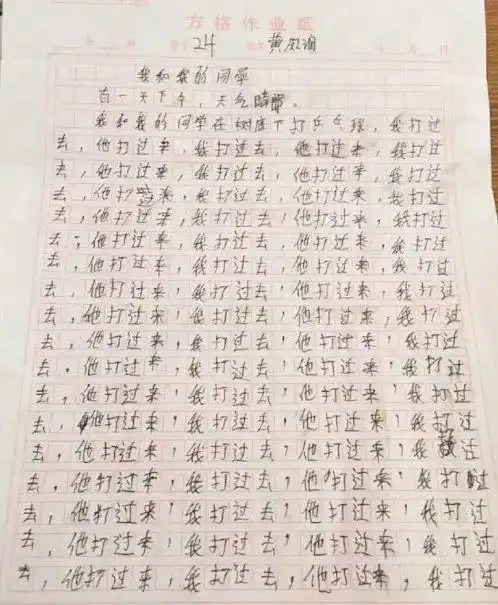 方格作业纸
24 黄
我和我的同学
有一天下午，天气晴朗。
我和我的同学在树底下打乒乓球，我打过
去，他打过来，我打过去，他打过来，我打过
去，他打过来，我打过去，他打过来，我打过
去，他打过来，我打过去，他打过来，我打过
去，他打过来，我打过去，他打过来，我打过
去，他打过来，我打过去，他打过来，我打过
去，他打过来，我打过去，他打过来，我打过
去，他打过来，我打过去，他打过来，我打过
去，他打过来，我打过去，他打过来，我打过
去，他打过来，我打过去，他打过来，我打过
去，他打过来，我打过去，他打过来，我打过
去，他打过来，我打过去，他打过来，我打过
去，他打过来，我打过去，他打过来，我打过
去，他打过来，我打过去，他打过来，我过
去，他打过来，我打过去，他打过来，我打过
去，他打过来，我打过去，他打过来，我打过
去，他打过来，我打过去，他打过来，我打过
去，他打过来，我打过去，他打过来，我打过